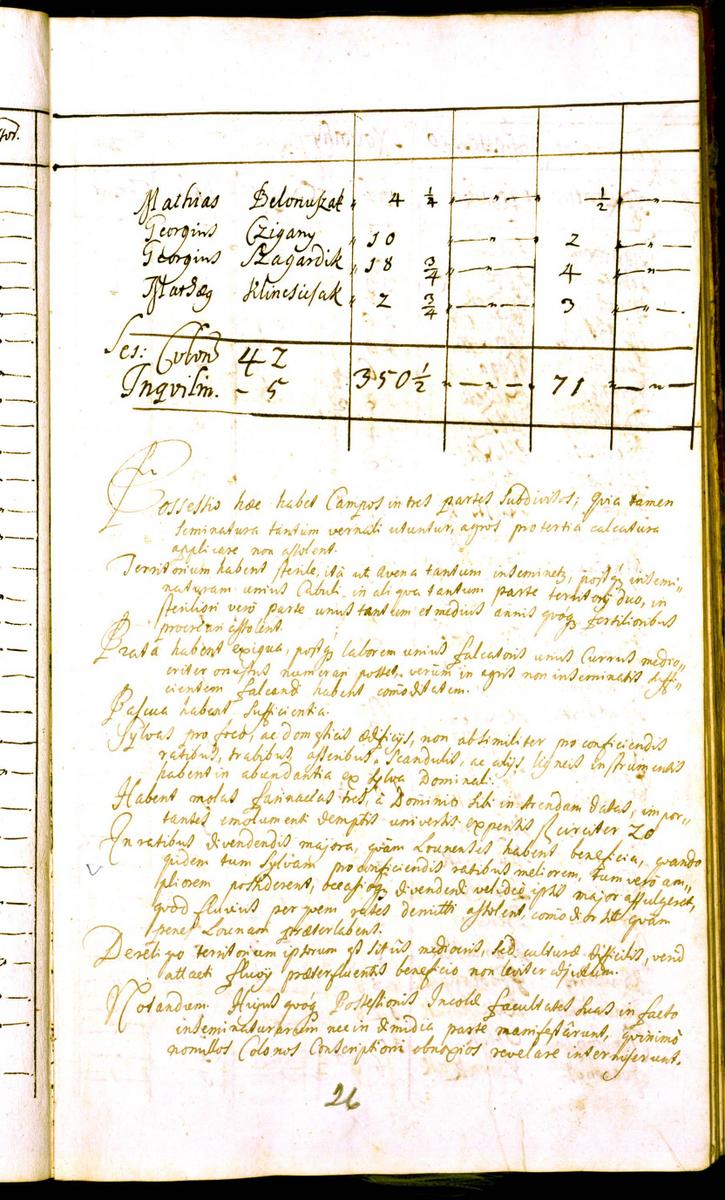 tor.
Mathias Belonuszak " 4 1/4 "—"— " 1/2 "—"—
Georgius Czigany " 10 "—"— " 2 "—"—
Georgius Szagardik " 18 3/4 "—"— " 4 "—"—
Mathæg Klincsusak " 2 3/4 "—"— " 3 "—"—
Ses: Colon 42
Inqvilin. - 5 350 1/2 "—"— 71 "—"—
Possessio hæc habet Campos in tres partes subdivisos; qvia tamen
seminatura tantum vernali utuntur, agros pro tertia calcatura
applicare non assolent.
Territorium habent sterile, ità ut Avena tantum inseminetr, postqz insemi„
naturam unius Cubuli in aliqva tantum parte territorij duo, in
steriliori verò parte unus tantum et medius annis qvoqz fertilioribus
procreari assolent.
Prata habent exiqua, postqz laborem unius falcatoris unus Currus medio„
criter onustus numerari posset, verùm in agris non inseminatis suffi„
cientem falcandi habent comoditatem.
Pascua habent sufficientia.
Sylvas pro foco, ac domesticis ædificijs, non absimiliter pro conficiendis
ratibus, trabibus, asseribus, Scandulis, ac alijs ligneis instrumentis
habent in abundantia ex sylva Dominali.
Habent molas farinaceas tres, à Dominio sibi in Arendam datas, impor„
tantes emolumenti demptis universis expensis circiter 20
In ratibus divendendis majora, qvàm Lounenses habent beneficia, qvando
qvidem tum sylvam pro conficiendis ratibus meliorem, tum verò am„
pliorem possiderent, occasioqz divendendi ipsis major affulgeret,
qvod fluvius per qvem rates demitti assolent, comodior sit qvàm
penes Lounam præterlabens.
De reliqvo territorium ipsorum est sitûs mediocris, sed culturæ difficilis,
attacti fluvij præterfluentis beneficio non leviter
Notandum. Hujus qvoqz Possessionis Incolæ facultates suas in facto
inseminaturarum nec in dimidia parte manifestârunt, qvinimò
nonullos Colonos Conscriptioni obnoxios revelare intermiserunt.
26